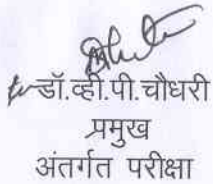 डॉ.व्ही.पी.चौधरी
प्रमुख
अंतर्गत परीक्षा